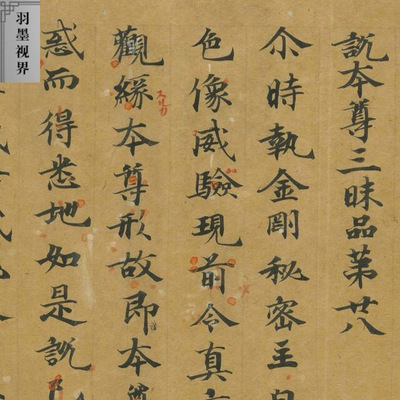 説本尊三昧品第廿八
尒時執金剛秘密主白
色像威驗現前令真言
觀緣本尊形故即本尊
惑而得悉地如是説
羽墨视界